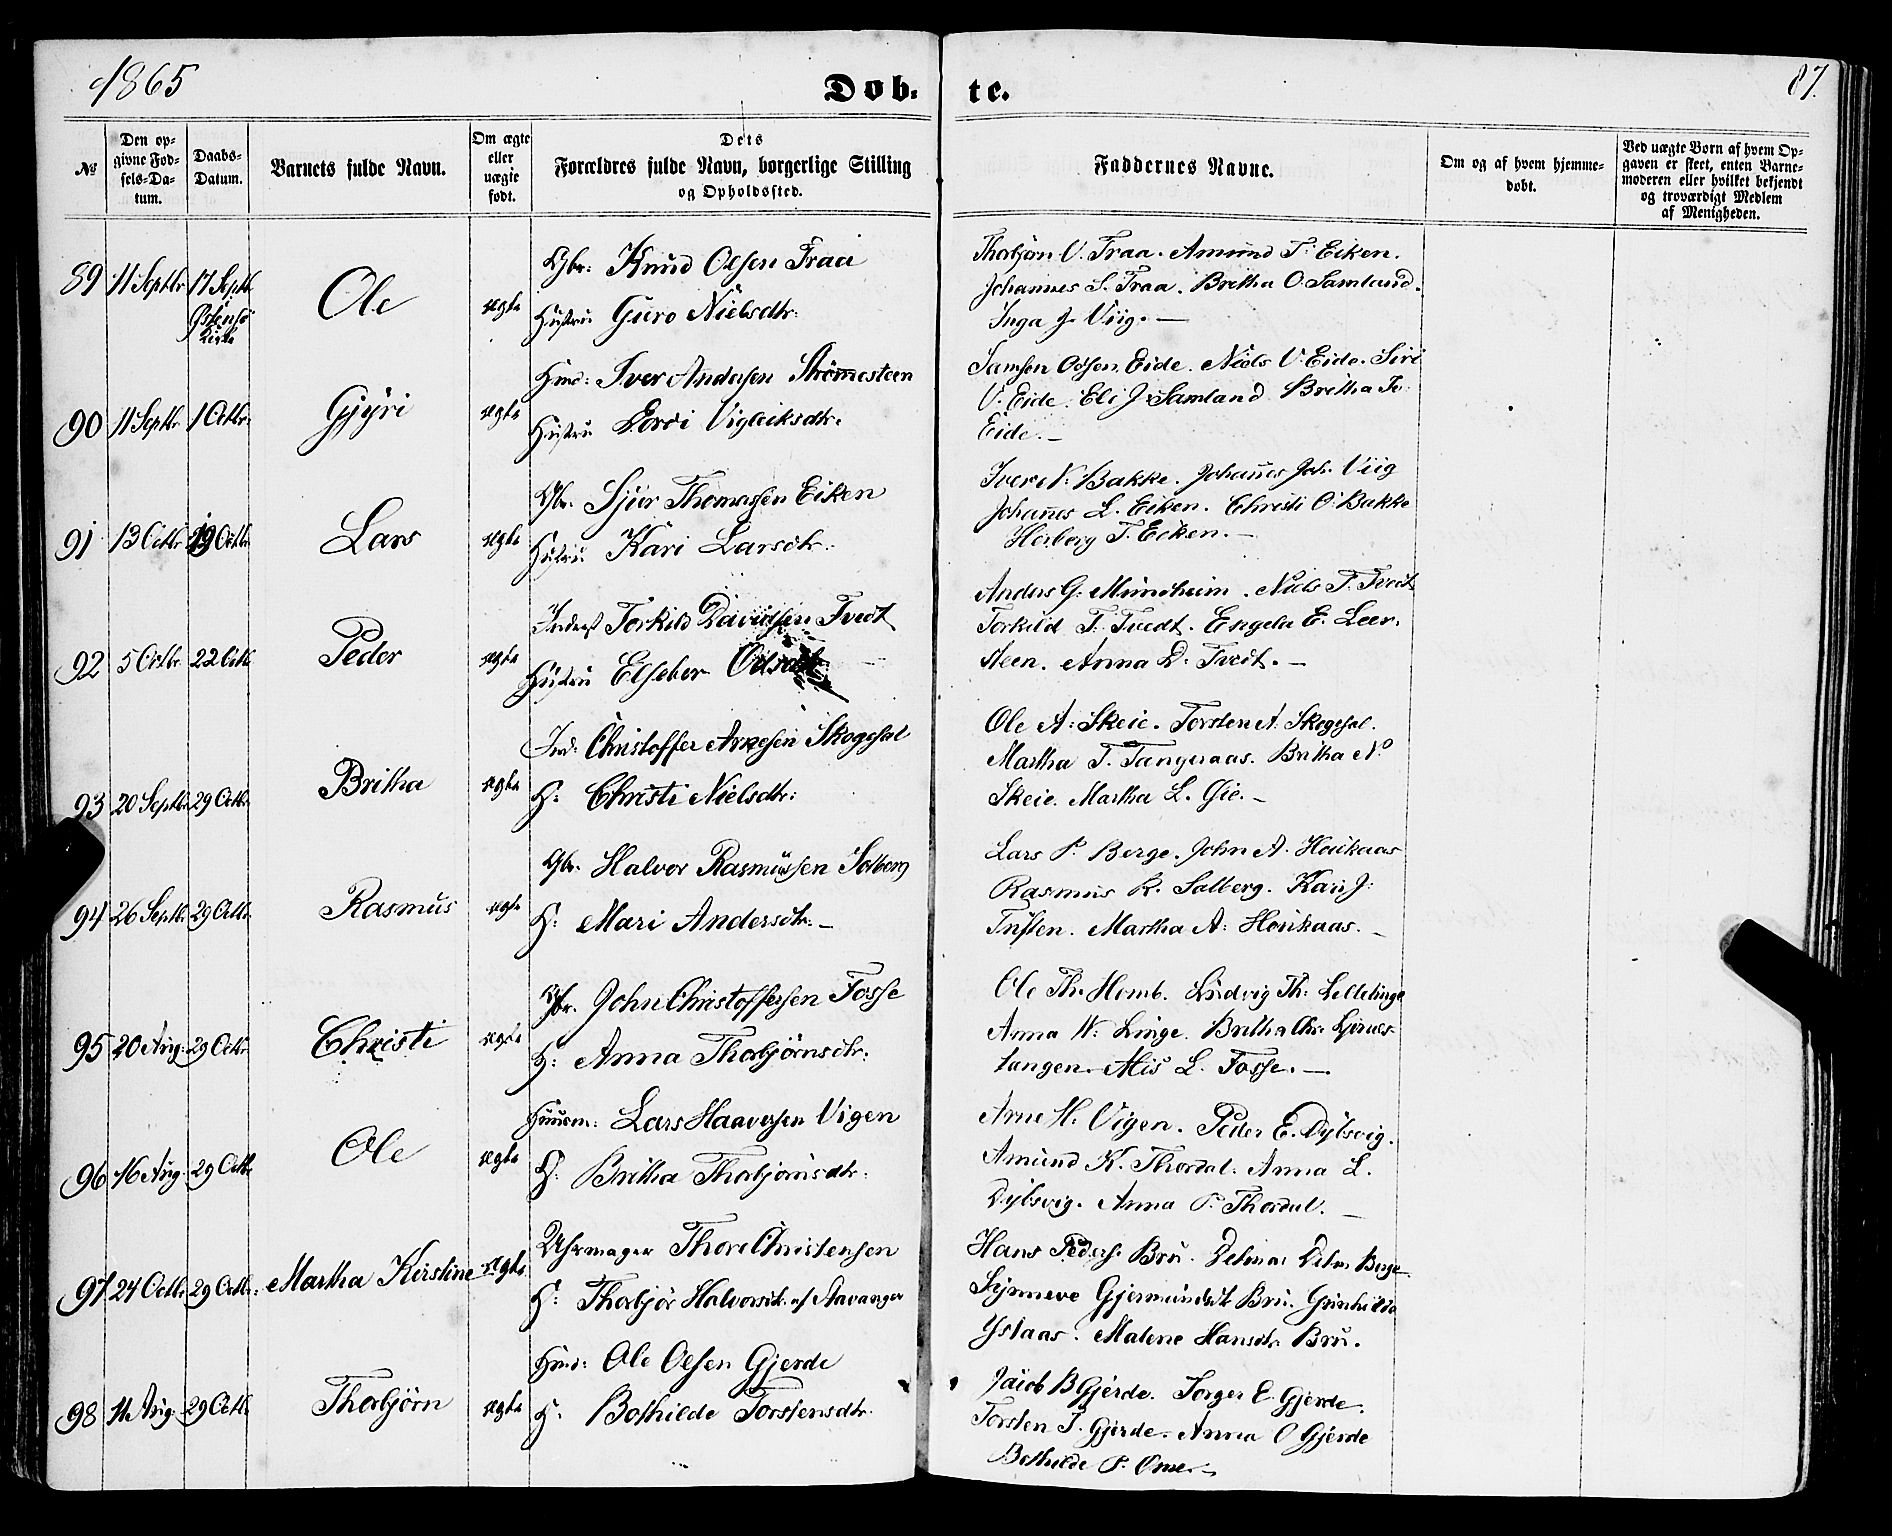 1865
Døb-
te.
87.
№
Den op-
givne Fød-
sels-Da-
tum.
Daabs-
Datum.
Barnets fulde Navn.
Om ægte
eller
uægte
født.
Dets
Forældres fulde Navn, borgerlige Stilling
og Opholdssted.
Faddernes Navne.
Om og af hvem hjemme-
døbt.
Ved uægte Børn af hvem Op-
gaven er skeet, enten Barne-
moderen eller hvilket bekjendt
og troværdigt Medlem
af Menigheden.
89 11 Septbr 17 Septb Østensö Kirke
Ole
ægte
Gbr: Knud Olsen Traa
Hustru Guro Nielsdtr:
Thorbjørn V. Traa. Amund T. Eiken.
Johannes S. Traa. Britha O. Samland.
Inga J. Viig. —
90 11 Septbr 1 Octbr.
Gjyri
ægte
Hmd: Iver Andersen Strømmesteen
Hustru Vigleiksdtr.
Samsen Odsen Eide. Niels V. Eide. Siri
V. Eide. Eli J. Samland. Britha
Eide. —
91 13 Octbr 19 Octbr
Lars
ægte
Gbr. Sjur Thomassen Eiken
Hustru Kari Larsdtr.
Iver N. Bakke. Johannes Joh. Viig
Johannes L. Eiken. Christi O. Bakke
Herborg T. Eiken. —
92 5 Octbr 22 Octb
Peder
ægte
Inderst Torkild Davidsen Tvedt
Hustru Elseber Odsdtr. —
Anders G. Mundheim. Niels T. Tvedt
Torkild T. Tvedt. Engela E. Leer-
steen. Anna D. Tvedt. —
93 20 Septbr 29 Octbr.
Britha
ægte
Ind: Christoffer Arnesen Skogesal
H: Christi Nielsdtr:
Ole A. Skeie. Torsten A. Skogesal.
Martha T. Tangeraas. Britha N.
Skeie. Martha L. —
94 26 Septbr 29 Octbr.
Rasmus
ægte
Gbr. Halvor Rasmussen Solberg
H: Mari Andersdtr: —
Lars P. Berge. John A. Houkaas
Rasmus R. Solberg. Kari J.
Tuften. Martha A. Houkaas. —
95 20 Aug: 29 Octbr
Christi
ægte
Gbr. John Christoffersen Fosse
H: Anna Thorbjørnsdtr:
Ole Th. Homb. Ludvig Th:
Anna W. Linge. Britha Chr.
tangen. L. Fosse. —
96 16 Aug. 29 Octbr
Ole
ægte
Huusm: Lars Haaversen Vigen
H: Britha Thorbjørnsdtr.
Arne H. Vigen. Peder E. Dybsvig.
Amund K. Thordal. Anna L.
Dybsvig. Anna P. Thordal. —
97 24 Octbr 29 Octbr.
Martha Kirstine
ægte
Uhrmager Thore Christensen
H: Thorbjør Halvorsdtr. af Stavanger
Hans Peders. Bru. Berge
Synneve Gjermundsdt Bru. Gunhilda
Ystaas. Malene Hansdtr. Bru.
98 11 Aug. 29 Octb.
Thorbjørn
ægte
Hmd: Ole Olsen Gjerde
H. Bothilde Torstensdtr.
Jacob B. Gjerde. Torger E. Gjerde.
Torsten T. Gjerde. Anna O Gjerde
Bothilde P. —